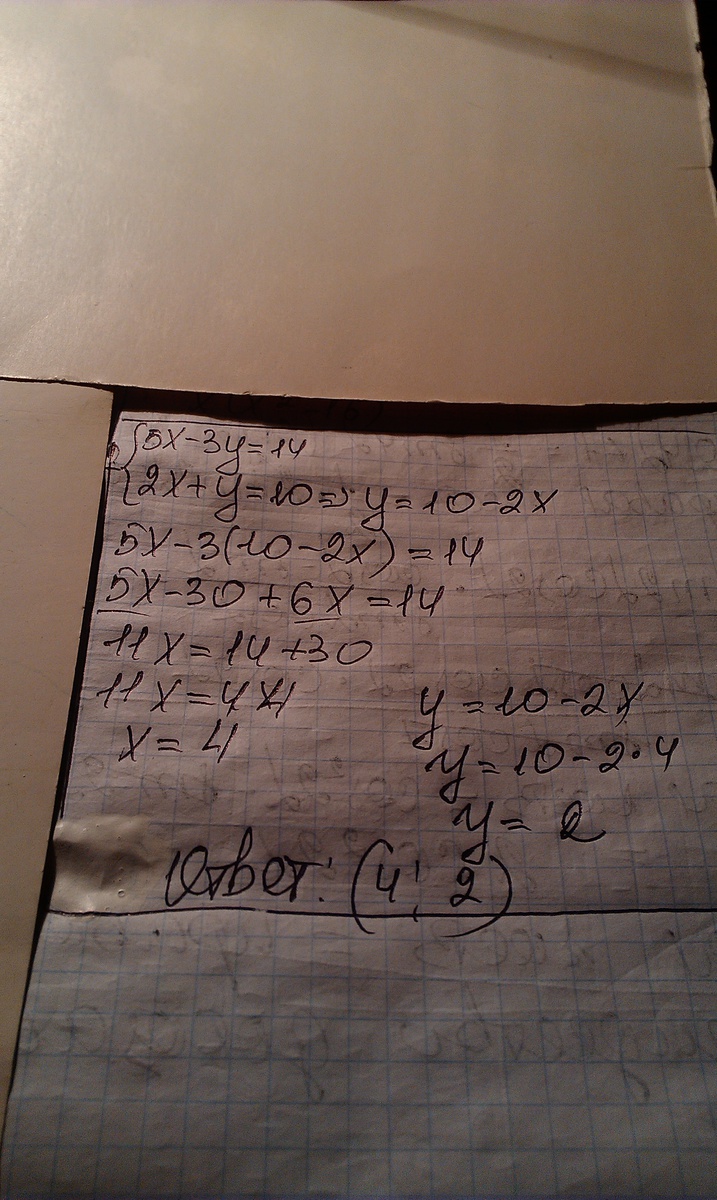 {5x-3y=14
{2x+y=10⇒y=10-2x
5x-3(10-2x)=14
5x-30+6x=14
11x=14+30
11x=44
x=4
y=10-2x
y=10-2·4
y=2
Ответ: (4; 2)